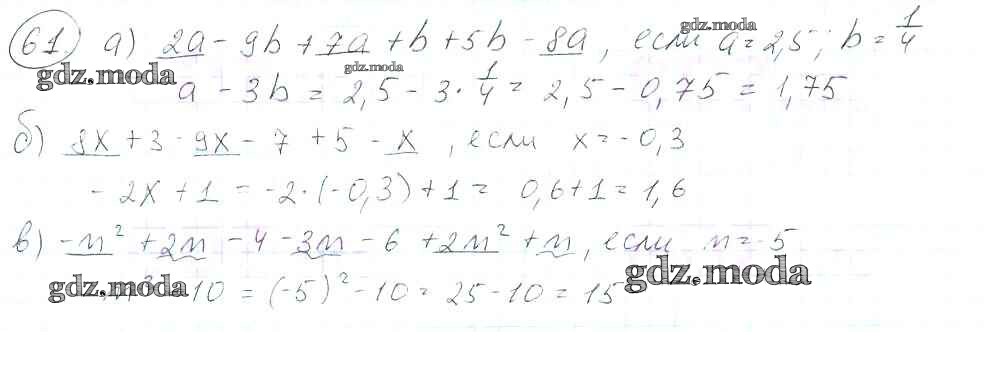 61. а) 2a - 9b + 7a + b + 5b - 8a, если a = 2,5; b = 1/4
a - 3b = 2,5 - 3 · 1/4 = 2,5 - 0,75 = 1,75
б) 8x + 3 - 9x - 7 + 5 - x, если x = -0,3
- 2x + 1 = -2 · (-0,3) + 1 = 0,6 + 1 = 1,6
в) -n² + 2n - 4 - 3n - 6 + 2n² + n, если n = -5
10 = (-5)² - 10 = 25 - 10 = 15
gdz.moda
gdz.moda
gdz.moda
gdz.moda
gdz.moda